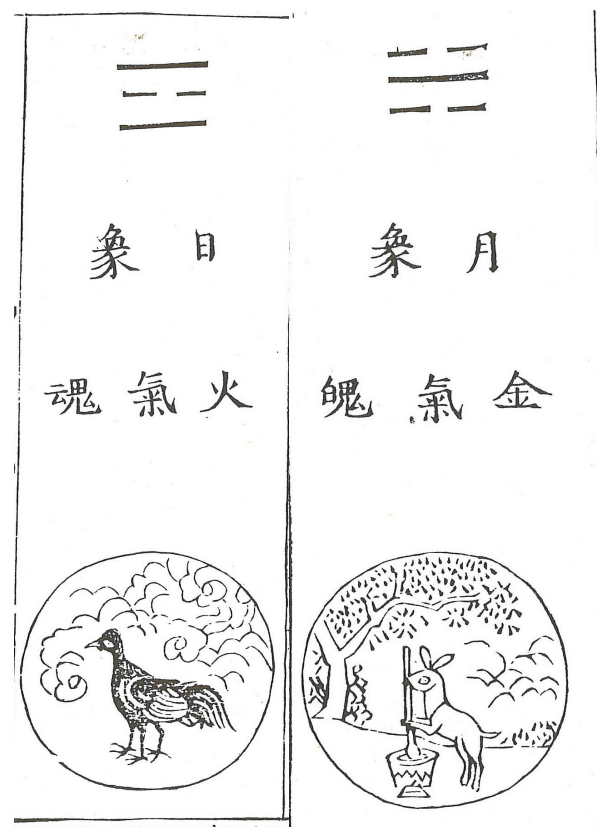 月象
金氣魄
日象
火氣魂